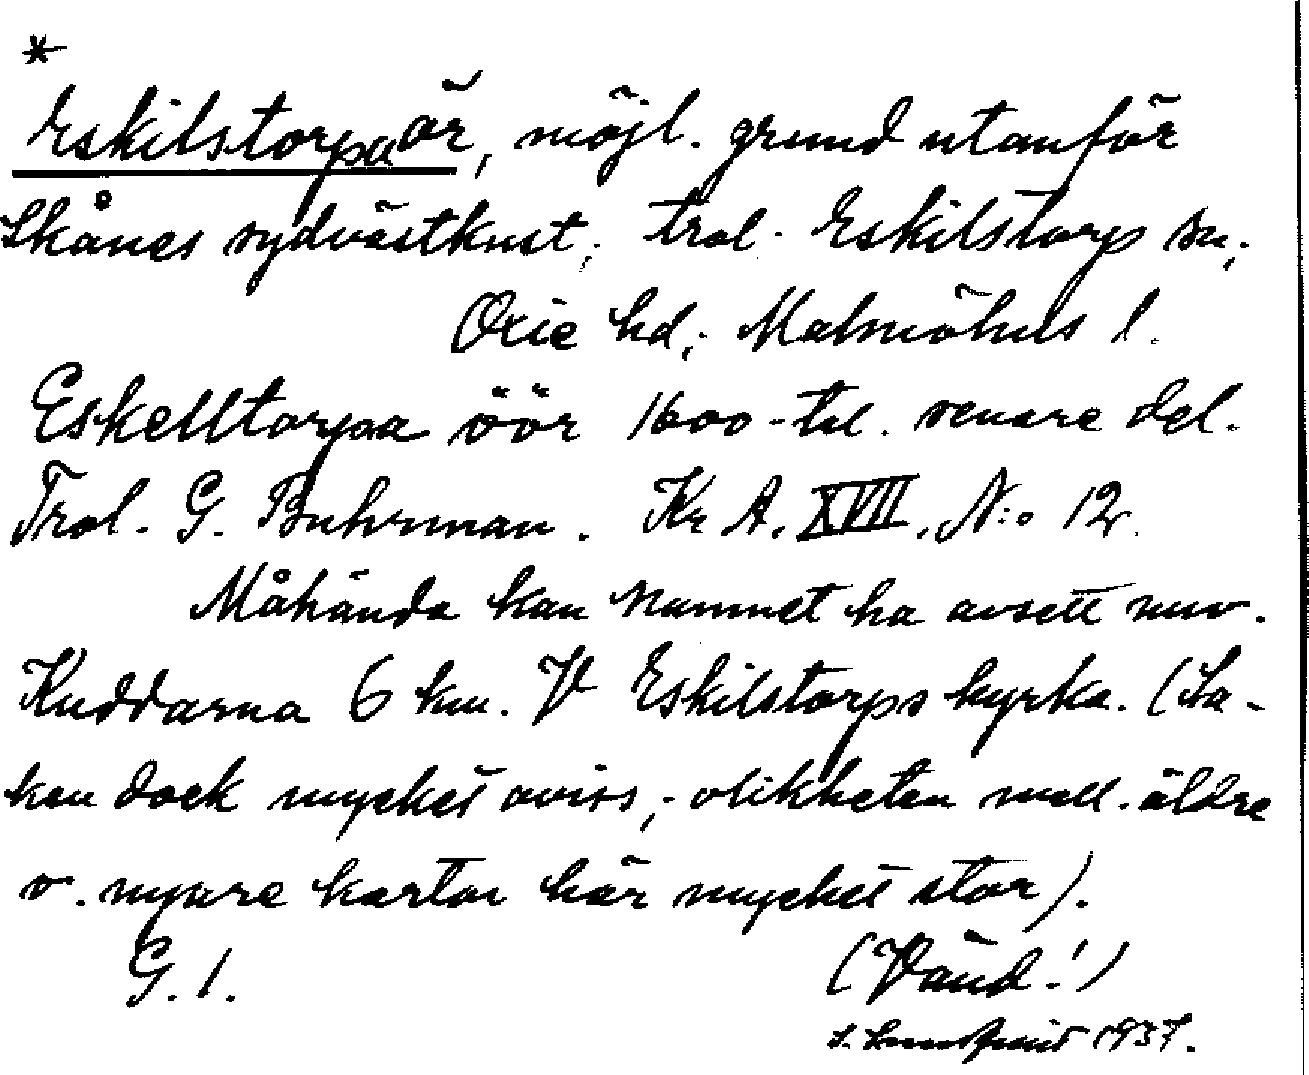 *
Eskilstorpa ör, möjl. grund utanför
Skånes sydvästkust; trol. Eskilstorp sn;
Oxie hd; Malmöhus l.
Eskelltorpaa öör 1600-tal. senare del.
Trol. G. Buhrman. Kr A. XVII, N:o 12.
Måhända kan namnet ha avsett nuv.
Kuddarna 6 km. V Eskilstorps kyrka. (Sa-
ken dock mycket oviss; olikheten mell. äldre
o. nyare kartor här mycket stor).
G. 1.
(Vänd!)
1937.